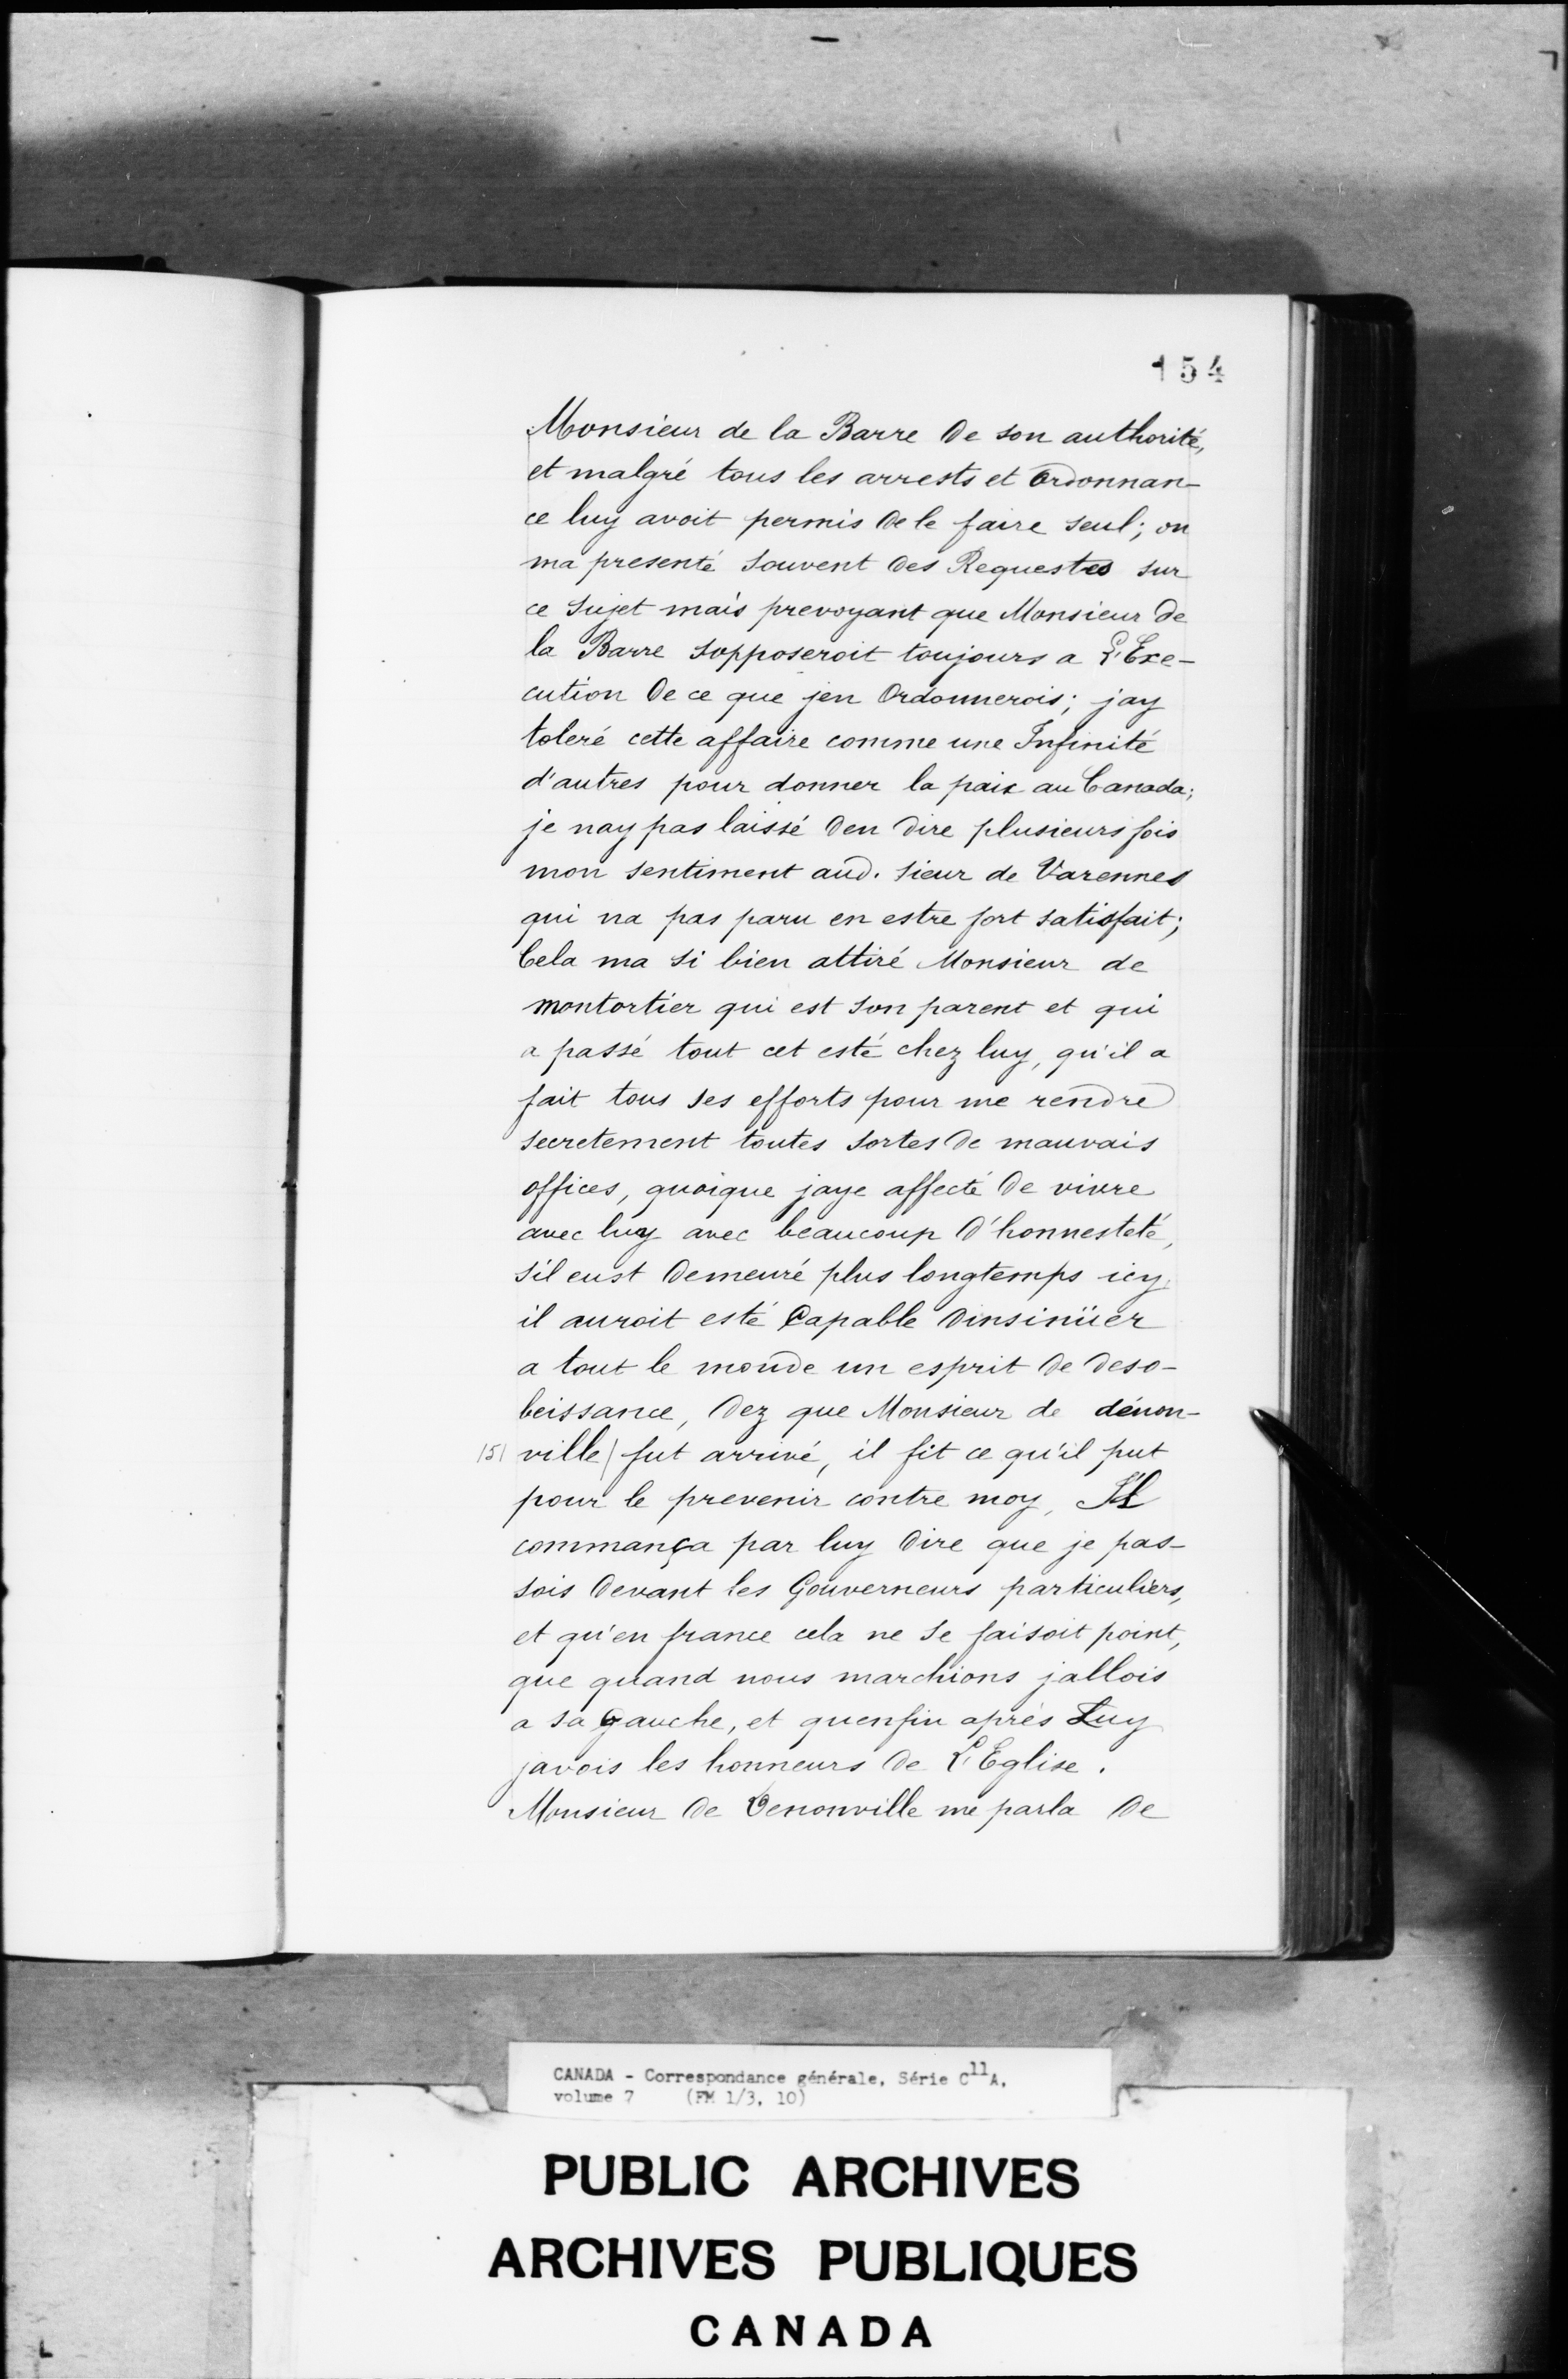 154
Monsieur de la Barre de son authorité,
et malgré tous les arrests et ordonnan-
ce luy avoit permis de le faire seul; on
ma presenté souvent des Requestes sur
ce sujet mais prevoyant que Monsieur de
la Barre sopposeroit toujours a L'Exe-
cution de ce que jen Ordonnerois; jay
toleré cette affaire comme une Infinité
d'autres pour donner la paix au Canada;
je nay pas laissé den dire plusieurs fois
mon sentiment aud. sieur de Varennes
qui na pas paru en estre fort satisfait;
Cela ma si bien attiré Monsieur de
montortier qui est son parent et qui
a passé tout cet esté chez luy, qu'il a
fait tous ses efforts pour me rendre
secretement toutes sortes de mauvais
offices, quoique jaye affecté de vivre
avec luy avec beaucoup d'honnesteté,
s'il eust demeuré plus longtemps icy,
il auroit esté Capable dinsinüer
a tout le monde un esprit de deso-
beissance, dez que Monsieur de dénon-
151 ville/ fut arrivé, il fit ce qu'il put
pour le prevenir contre moy, Il
commança par luy dire que je pas-
sois devant les Gouverneurs particuliers,
et qu'en france cela ne se faisoit point,
que quand nous marchions jallois
a sa gauche, et quenfin après Luy
javois les honneurs de L'Eglise.
Monsieur de Denonville me parla de
CANADA - Correspondance générale, Série C11A,
volume 7 (FM 1/3, 10)
PUBLIC ARCHIVES
ARCHIVES PUBLIQUES
CANADA